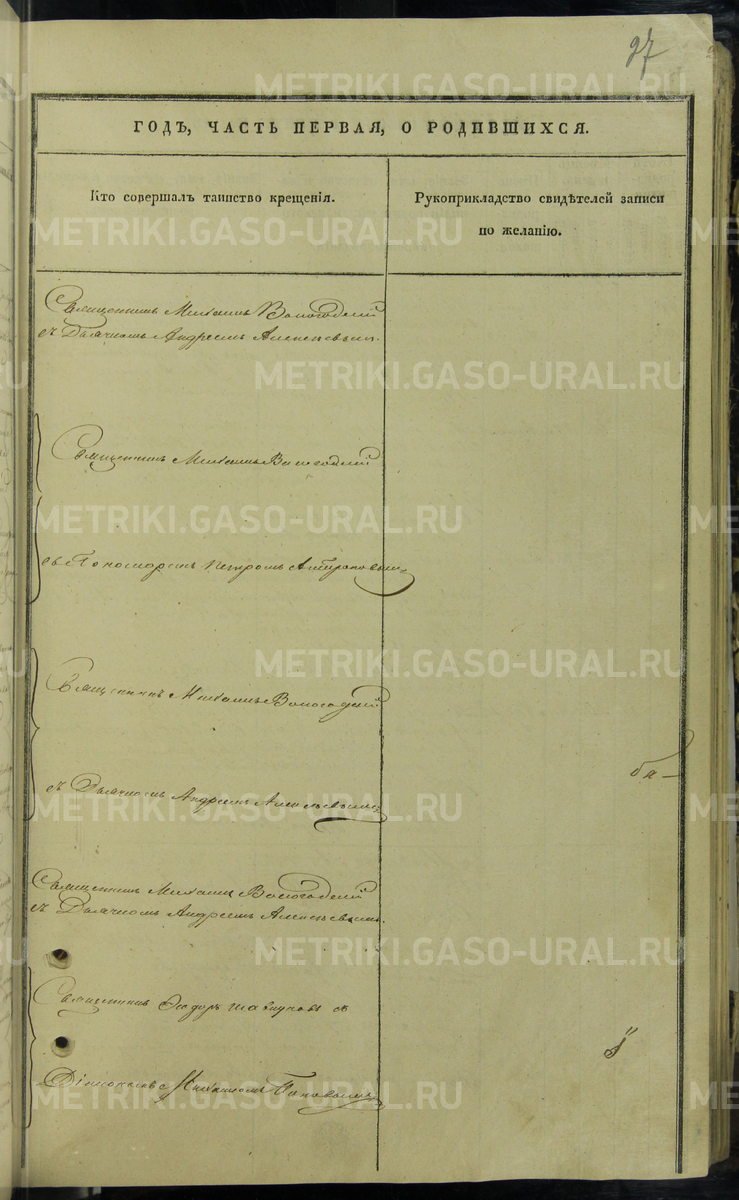 97
ГОДЪ, ЧАСТЬ ПЕРВАЯ, О РОДИВШИХСЯ.
Кто совершалъ таинство крещенія.
Рукоприкладство свидѣтелей записи
по желанію.
Священникъ Михаилъ Вологодскій
съ Дьячкомъ Андреемъ Алексѣевымъ.
Священникъ Михаилъ Вологодскій
съ Пономаремъ Петромъ
Священникъ Михаилъ Вологодскій
съ Дьячкомъ Андреемъ Алексѣевымъ
Священникъ Михаилъ Вологодскій
съ Дьячкомъ Андреемъ Алексѣевымъ.
Священникъ Ѳедоръ съ
Діакономъ Михаиломъ Поповымъ
METRIKI.GASO-URAL.RU